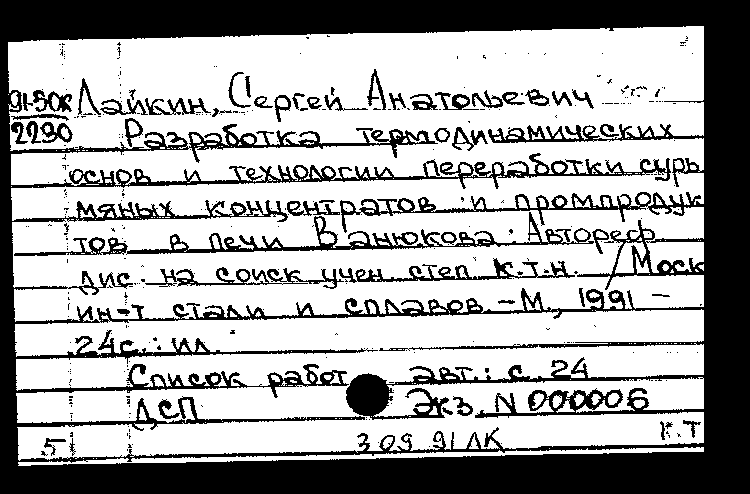 91-50к Лайкин, Сергей Анатольевич
2290 Разработка термодинамических
основ и технологии переработки сурь
мяных концентратов и промпродук
тов в печи Ванюкова: Автореф.
дис. на соиск учен степ к.т.н. / Моск
ин-т стали и сплавов. - М., 1991 -
24с.: ил.
Список работ авт.: с. 24
ДСП Экз. N 000006
5 3 09 91 ЛК К.Т